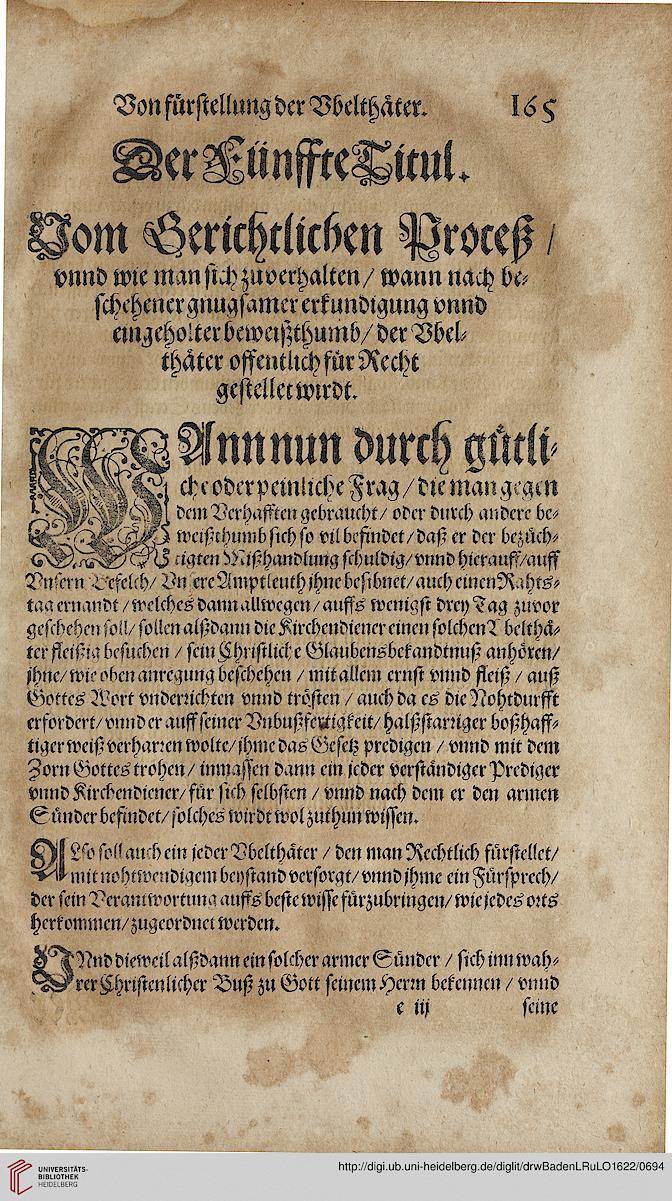 Von fürstellung der Vbelthäter. 165
Der Fünffte Titul.
Vom Gerichtlichen Proceß /
vnnd wie man sich zuverhalten / wann nach be-
schehener gnugsamer erkundigung vnnd
eingeholter beweißthumb / der Vbel-
thäter offentlich für Recht
gestellet wirdt.
WAnn nun durch gütli-
che oder peinliche Frag / die man gegen
dem Verhafften gebraucht / oder durch andere be-
weißthumb sich so vil befindet / daß er der bezüch-
tigten Mißhandlung schuldig / vnnd hierauff / auff
Vnsern Befelch / Vnsere Amptleuth jhne besibnet / auch einen Rahts-
tag ernandt / welches dann allwegen / auffs wenigst drey Tag zuvor
geschehen soll / sollen alßdann die Kirchendiener einen solchen Vbelthä-
ter fleißig besuchen / sein Christliche Glaubensbekandtnuß anhören /
jhne / wie oben anregung beschehen / mit allem ernst vnnd fleiß / auß
Gottes Wort vnderrichten vnnd trösten / auch da es die Nohtdurfft
erfordert / vnnd er auff seiner Vnbußfertigkeit / halßstarriger boßhaff-
tiger weiß verharren wolte / jhme das Gesetz predigen / vnnd mit dem
Zorn Gottes trohen / inmassen dann ein jeder verständiger Prediger
vnnd Kirchendiener / für sich selbsten / vnnd nach dem er den armen
Sünder befindet / solches wirdt wol zuthun wissen.
ALso soll auch ein jeder Vbelthäter / den man Rechtlich fürstellet /
mit nohtwendigem beystand versorgt / vnnd jhme ein Fürsprech /
der sein Verantwortung auffs beste wisse fürzubringen / wie jedes orts
herkommen / zugeordnet werden.
VNnd dieweil alßdann ein solcher armer Sünder / sich inn wah-
rer Christenlicher Buß zu Gott seinem Herrn bekennen / vnnd
e iij seine
UNIVERSITÄTS-
BIBLIOTHEK
HEIDELBERG
http://digi.ub.uni-heidelberg.de/diglit/drwBadenLRuLO1622/0694